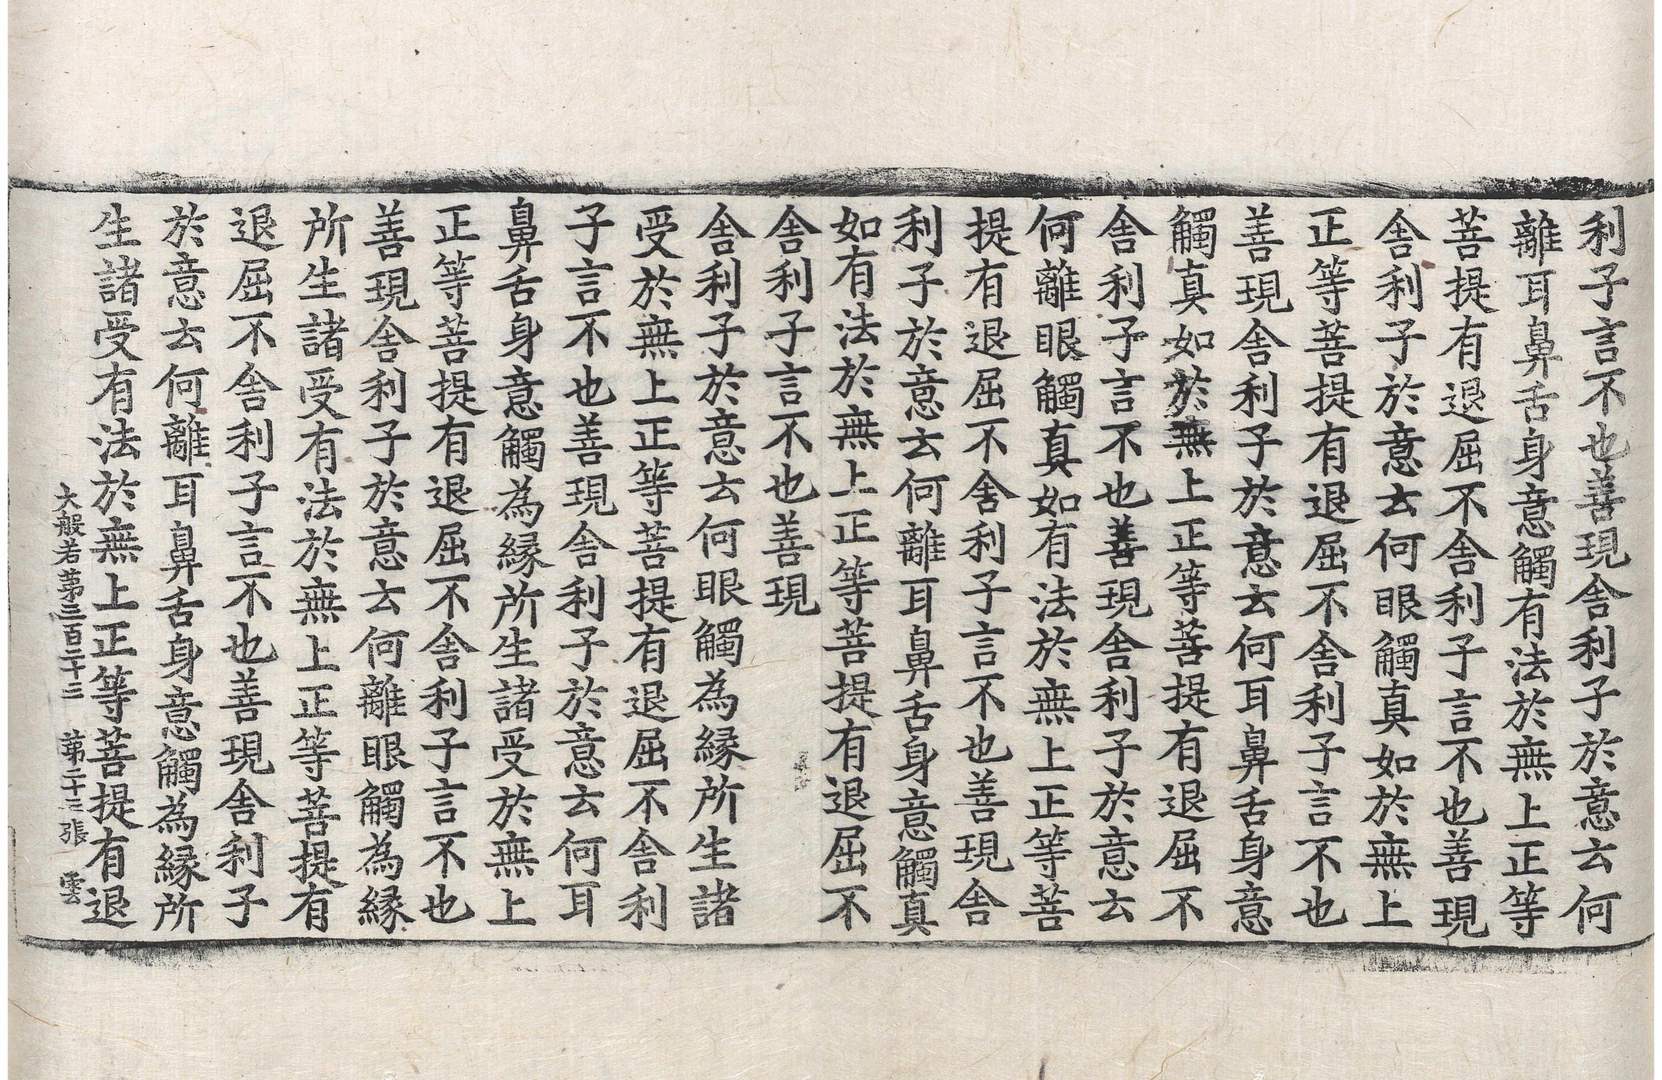 利子言不也善現舍利子於意云何
離耳鼻舌身意觸有法於無上正等
菩提有退屈不舍利子言不也善現
舍利子於意云何眼觸真如於無上
正等菩提有退屈不舍利子言不也
善現舍利子於意云何耳鼻舌身意
觸真如於無上正等菩提有退屈不
舍利子言不也善現舍利子於意云
何離眼觸真如有法於無上正等菩
提有退屈不舍利子言不也善現舍
利子於意云何離耳鼻舌身意觸真
如有法於無上正等菩提有退屈不
舍利子言不也善現
舍利子於意云何眼觸為縁所生諸
受於無上正等菩提有退屈不舍利
子言不也善現舍利子於意云何耳
鼻舌身意觸為縁所生諸受於無上
正等菩提有退屈不舍利子言不也
善現舍利子於意云何離眼觸為縁
所生諸受有法於無上正等菩提有
退屈不舍利子言不也善現舍利子
於意云何離耳鼻舌身意觸為縁所
生諸受有法於無上正等菩提有退
大般若第三百二十三 第二十三張 雲